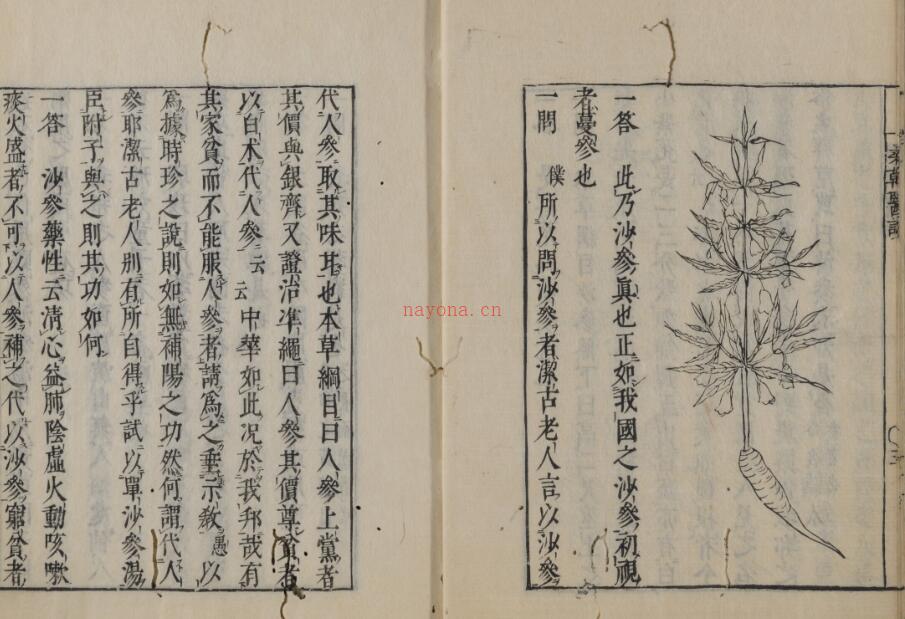 一答　此乃沙參眞也正如我國之沙參初視
者蔓參也
一問　僕所以問沙參者潔古老人言以沙參
代人參取其味甘也本草綱目曰人參上黨者
其價與銀齊又證治準繩曰人參其價尊貧者
以白朮代人參云云中華如此况於我邦哉有
其家貧而不能服人參者請爲之垂示敎愚以
爲據時珍之說則如無補陽之功然何謂代人
參耶潔古老人別有所自得乎試以單沙參湯
臣附子與之則其功如何
一答　沙參藥性云淸心益肺陰虛火動咳嗽
痰火盛者不可以人參補之代以沙參窮貧者
nayona.cn